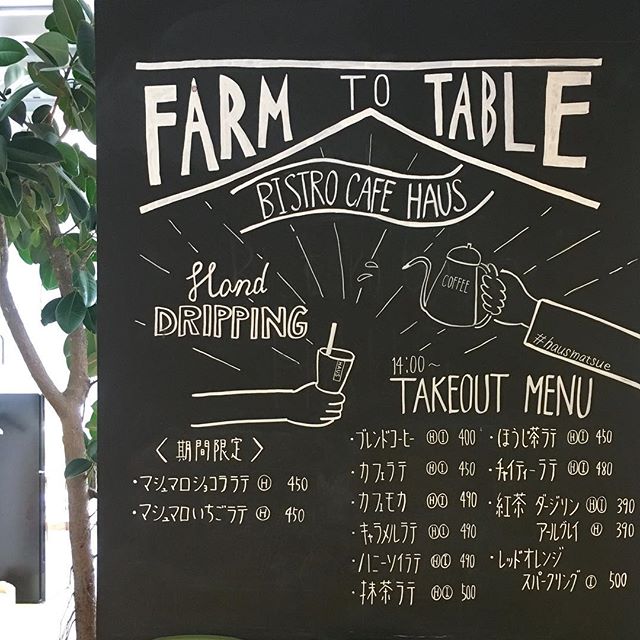 FARM TO TABLE
BISTRO CAFE HAUS
Hand
DRIPPING
COFFEE
#hausmatsue
HAUS
14:00~
TAKEOUT MENU
〈期間限定〉
・マシュマロショコララテ Ⓗ 450
・マシュマロいちごラテ Ⓗ 450
・ブレンドコーヒー ⒽⒾ 400
・カフェラテ ⒽⒾ 450
・カフェモカ ⒽⒾ 490
・キャラメルラテ ⒽⒾ 490
・ハニーソイラテ ⒽⒾ 490
・抹茶ラテ ⒽⒾ 500
・ほうじ茶ラテ ⒽⒾ 450
・チャイティーラテ ⒽⒾ 480
・紅茶 ダージリン ⒽⒾ 390
アールグレイ Ⓗ 390
・レッドオレンジ
スパークリング Ⓘ 500